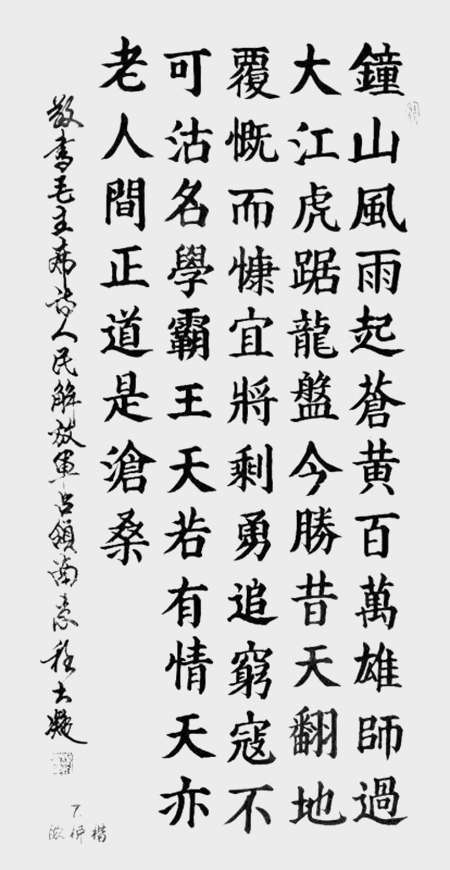 鐘山風雨起蒼黄百萬雄師過
大江虎踞龍盤今勝昔天翻地
覆慨而慷宜將剩勇追窮寇不
可沽名學霸王天若有情天亦
老人間正道是滄桑
敬書毛主席詩人民解放軍占領南京程大